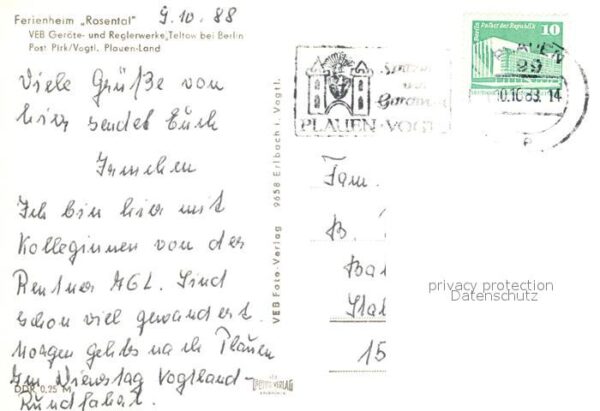 Ferienheim „Rosental"
9.10.88
VEB Geräte- und Reglerwerke „Teltow bei Berlin
Post Pirk/Vogtl. Plauen-Land
Viele Grüße von
hier sendet Euch
Ich bin hier mit
Kolleginnen von der
Rentner AGL. Sind
schon viel gewandert.
Morgen gehts nach Plauen
Im Dienstag Vogtland-
Rundfahrt.
DDR 0,25 M
VEB Foto-Verlag 9658 Erlbach i. Vogtl.
Berlin, Palast der Republik
10
PLAUEN
10.10.88. 14
PLAUEN · VOGTL
Fam.
B.
Ba
15
privacy protection
Datenschutz